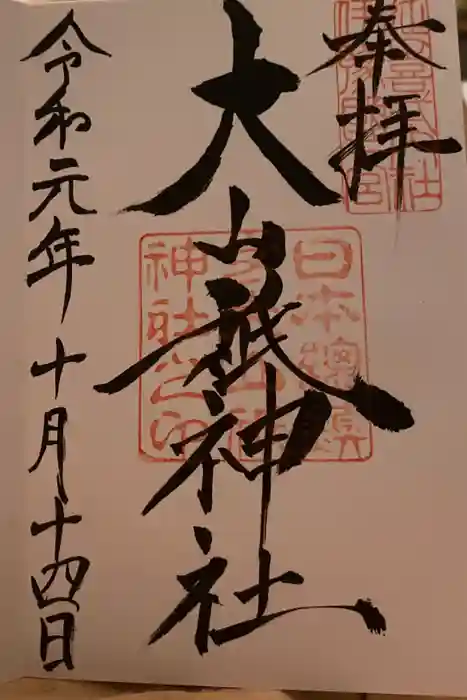 奉拝
大山祇神社
日本總鎮
神社之印
令和元年十月十四日